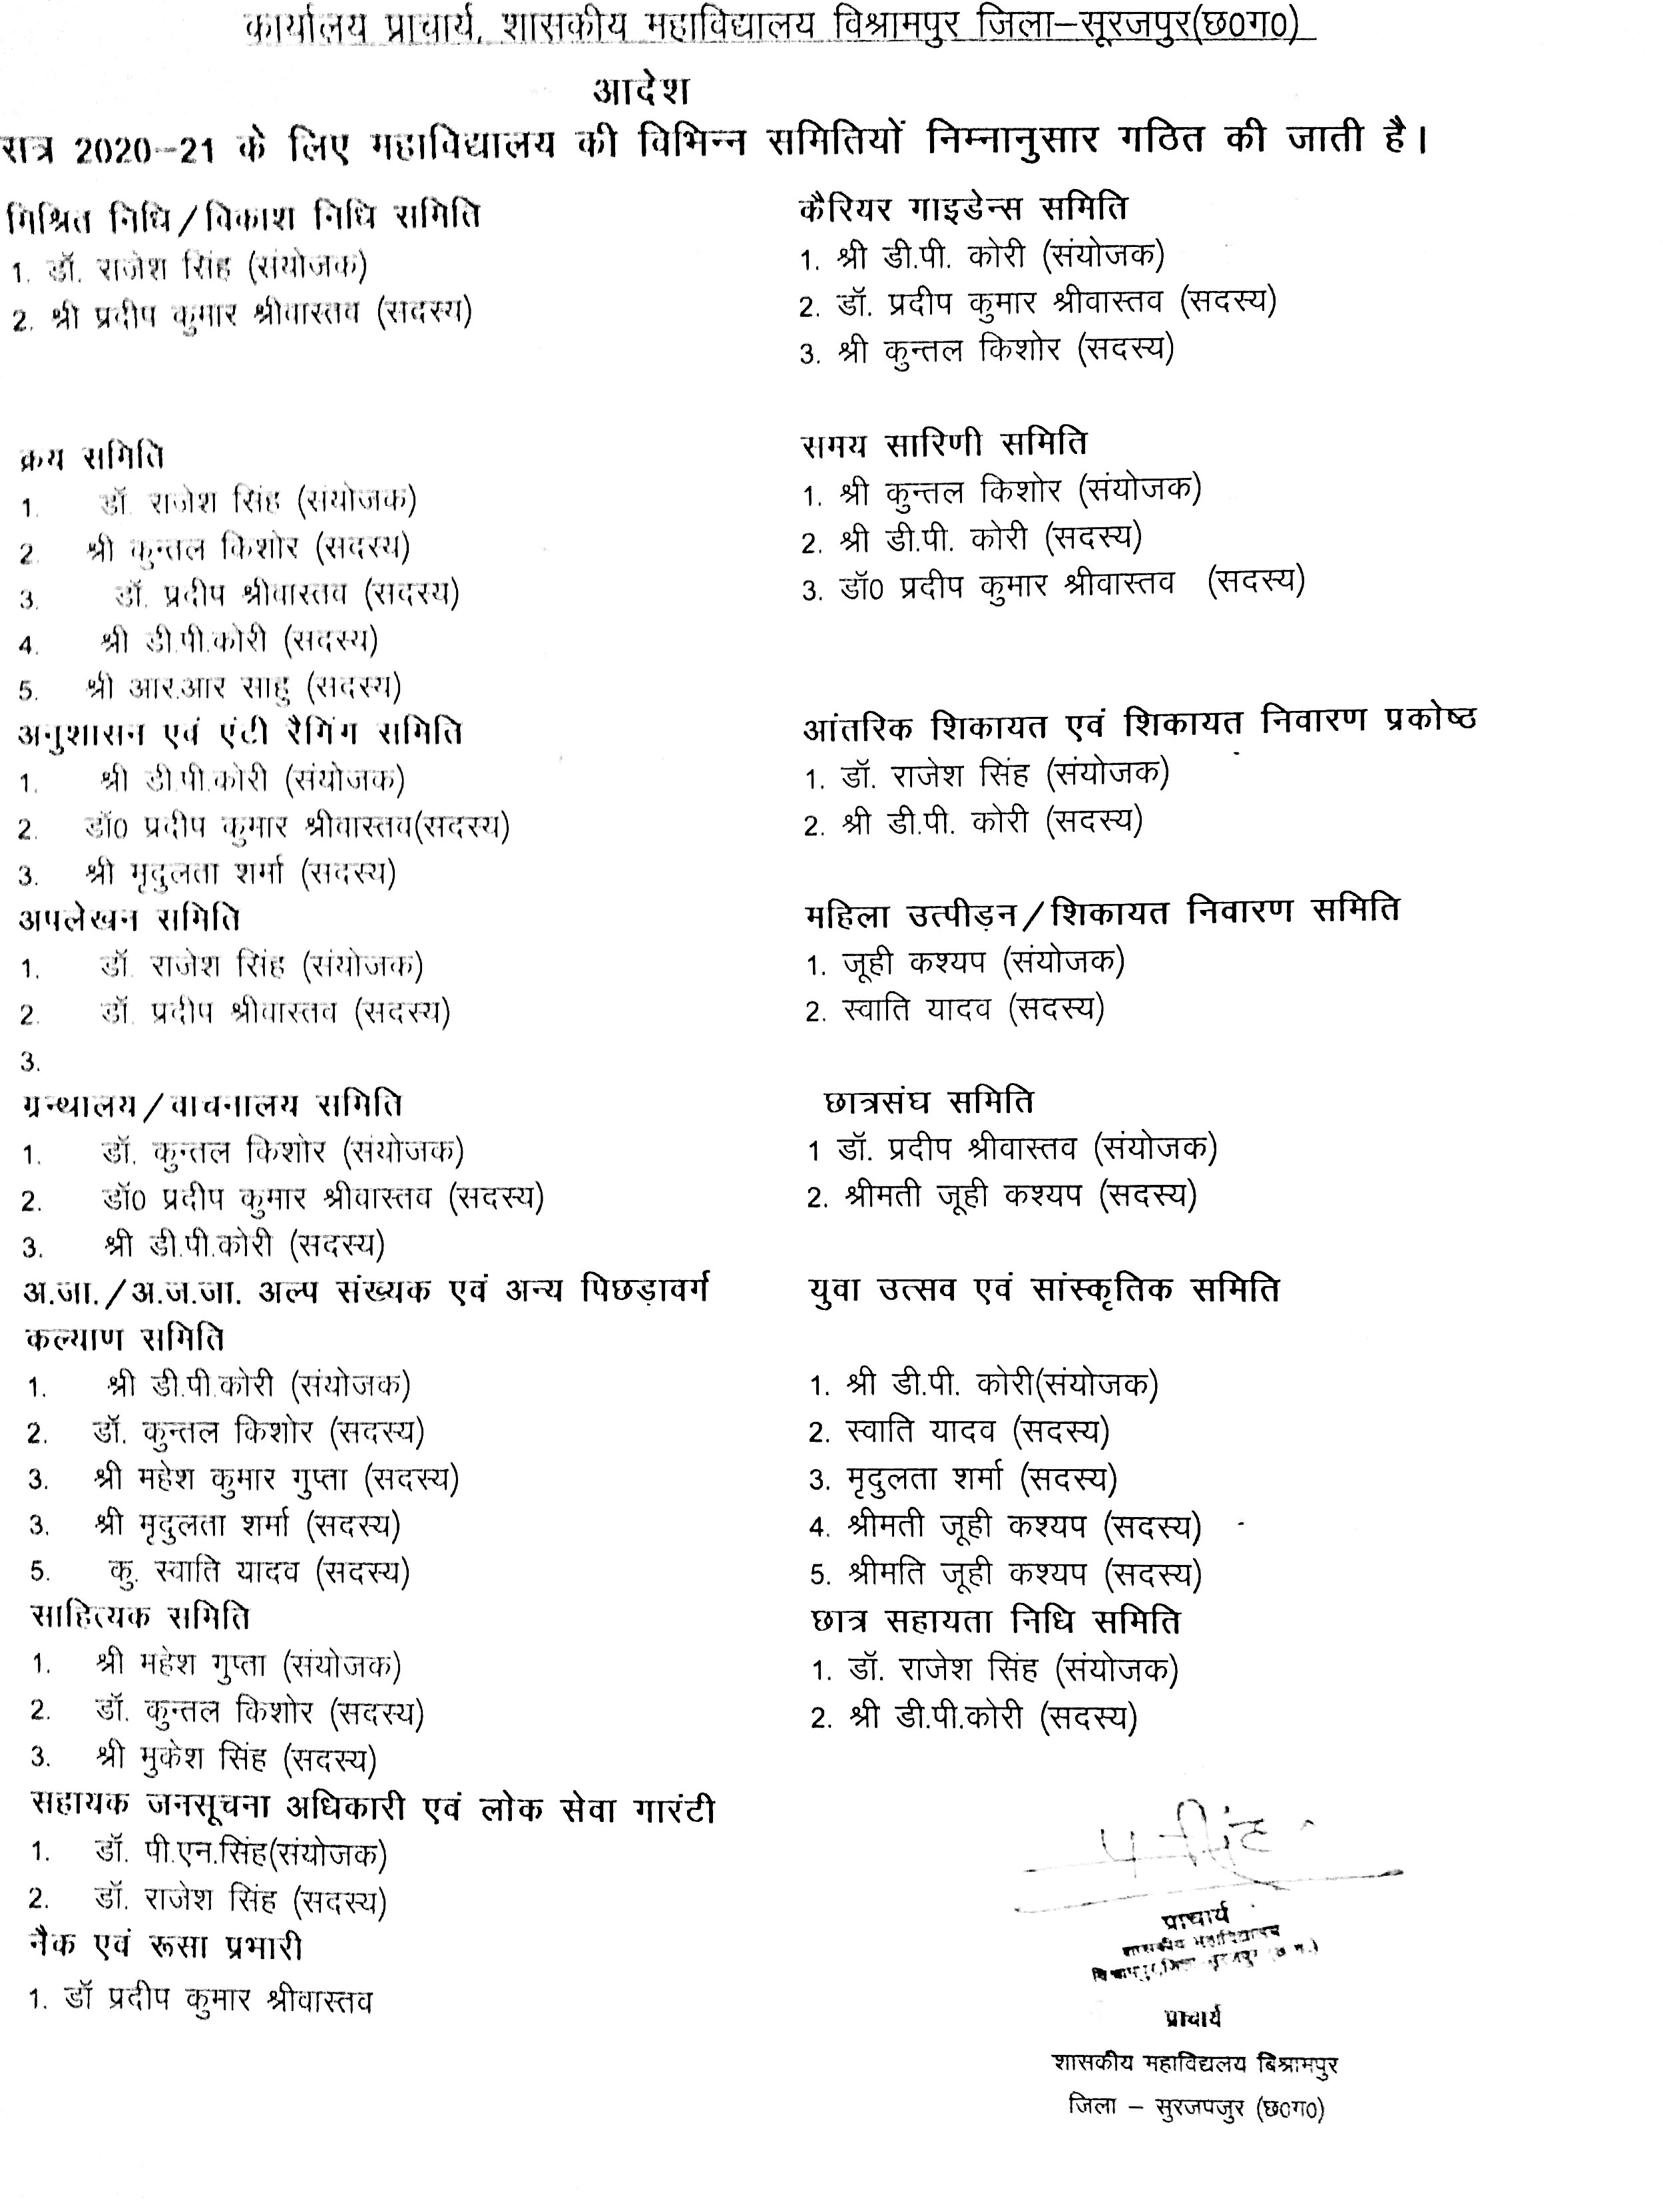 कार्यालय प्राचार्य, शासकीय महाविद्यालय विश्रामपुर जिला–सूरजपुर(छ0ग0)
आदेश
सत्र 2020–21 के लिए महाविद्यालय की विभिन्न समितियों निम्नानुसार गठित की जाती है।
मिश्रित निधि/विकाश निधि समिति
1. डॉ. राजेश सिंह (संयोजक)
2. श्री प्रदीप कुमार श्रीवास्तव (सदस्य)
कैरियर गाइडेन्स समिति
1. श्री डी.पी. कोरी (संयोजक)
2. डॉ. प्रदीप कुमार श्रीवास्तव (सदस्य)
3. श्री कुन्तल किशोर (सदस्य)
क्रय समिति
1. डॉ. राजेश सिंह (संयोजक)
2. श्री कुन्तल किशोर (सदस्य)
3. डॉ. प्रदीप श्रीवास्तव (सदस्य)
4. श्री डी.पी.कोरी (सदस्य)
5. श्री आर.आर साहु (सदस्य)
समय सारिणी समिति
1. श्री कुन्तल किशोर (संयोजक)
2. श्री डी.पी. कोरी (सदस्य)
3. डॉ0 प्रदीप कुमार श्रीवास्तव (सदस्य)
अनुशासन एवं एंटी रैगिंग समिति
1. श्री डी.पी.कोरी (संयोजक)
2. डॉ0 प्रदीप कुमार श्रीवास्तव(सदस्य)
3. श्री मृदुलता शर्मा (सदस्य)
आंतरिक शिकायत एवं शिकायत निवारण प्रकोष्ठ
1. डॉ. राजेश सिंह (संयोजक)
2. श्री डी.पी. कोरी (सदस्य)
अपलेखन समिति
1. डॉ. राजेश सिंह (संयोजक)
2. डॉ. प्रदीप श्रीवास्तव (सदस्य)
3.
महिला उत्पीड़न/शिकायत निवारण समिति
1. जूही कश्यप (संयोजक)
2. स्वाति यादव (सदस्य)
ग्रन्थालय/वाचनालय समिति
1. डॉ. कुन्तल किशोर (संयोजक)
2. डॉ0 प्रदीप कुमार श्रीवास्तव (सदस्य)
3. श्री डी.पी.कोरी (सदस्य)
छात्रसंघ समिति
1 डॉ. प्रदीप श्रीवास्तव (संयोजक)
2. श्रीमती जूही कश्यप (सदस्य)
अ.जा./अ.ज.जा. अल्प संख्यक एवं अन्य पिछड़ावर्ग
कल्याण समिति
1. श्री डी.पी.कोरी (संयोजक)
2. डॉ. कुन्तल किशोर (सदस्य)
3. श्री महेश कुमार गुप्ता (सदस्य)
3. श्री मृदुलता शर्मा (सदस्य)
5. कु. स्वाति यादव (सदस्य)
युवा उत्सव एवं सांस्कृतिक समिति
1. श्री डी.पी. कोरी(संयोजक)
2. स्वाति यादव (सदस्य)
3. मृदुलता शर्मा (सदस्य)
4. श्रीमती जूही कश्यप (सदस्य)
5. श्रीमति जूही कश्यप (सदस्य)
साहित्यक समिति
1. श्री महेश गुप्ता (संयोजक)
2. डॉ. कुन्तल किशोर (सदस्य)
3. श्री मुकेश सिंह (सदस्य)
छात्र सहायता निधि समिति
1. डॉ. राजेश सिंह (संयोजक)
2. श्री डी.पी.कोरी (सदस्य)
सहायक जनसूचना अधिकारी एवं लोक सेवा गारंटी
1. डॉ. पी.एन.सिंह(संयोजक)
2. डॉ. राजेश सिंह (सदस्य)
नैक एवं रूसा प्रभारी
1. डॉ प्रदीप कुमार श्रीवास्तव
प्राचार्य
शासकीय महाविद्यालय
प्राचार्य
शासकीय महाविद्यलय बिश्रामपुर
जिला – सुरजपजुर (छ0ग0)